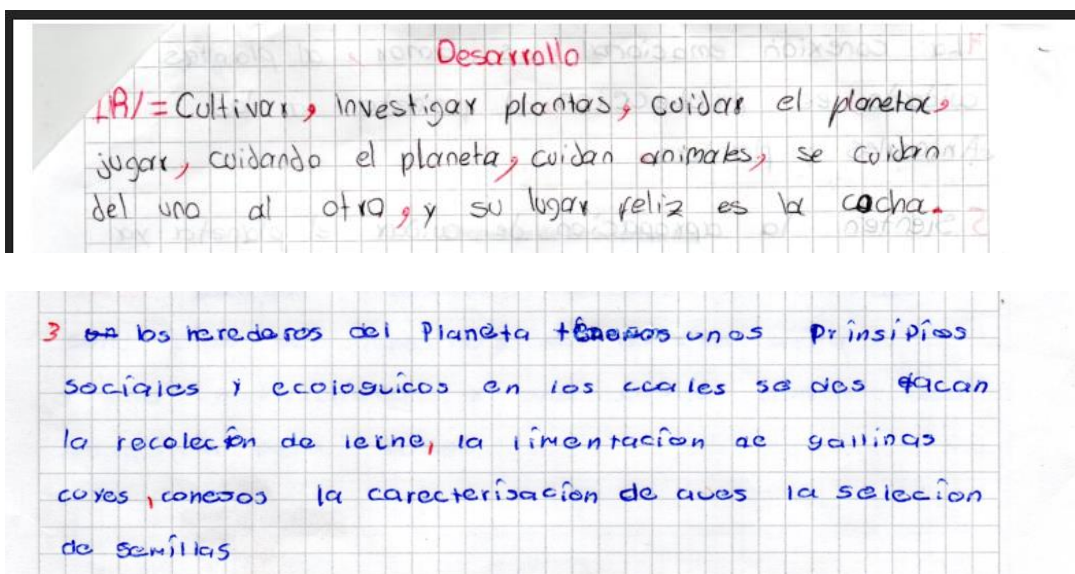 Desarrollo
1R/= Cultivar, investigar plantas, cuidar el planeta,
jugar, cuidando el planeta, cuidan animales, se cuidan
del uno al otro, y su lugar feliz es la cocha.
3 los herederos del Planeta tenemos unos prinsipios
sociales y ecologuicos en los ccales se des tacan
la recolecion de leche, la limentacion de gallinas
cuyes, conejos la carecterisacion de aves la selecion
de semillas